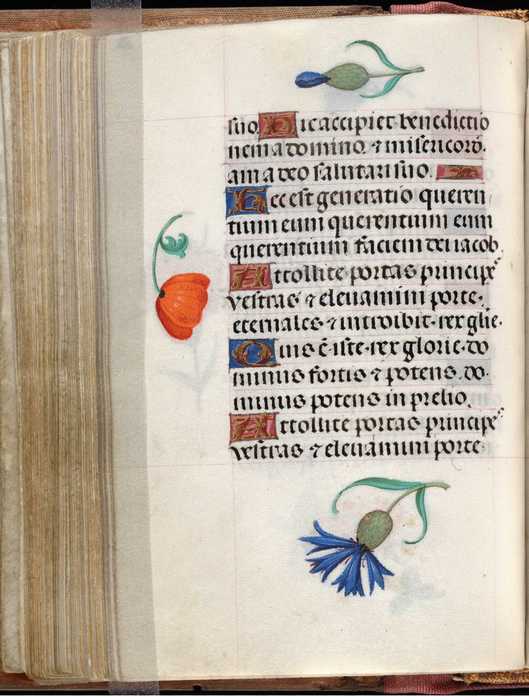 suo. Hic accipiet benedictio
nem a domino. ⁊ misericord.
am a deo salutari suo.
Hec est generatio queren
tium eum querentium eum
querentium faciem dei iacob.
Attollite portas principes
vestras ⁊ elevamini porte.
eternales ⁊ introibit rex glie.
Quis ē iste rex glorie do
minus fortis ⁊ potens do.
minus potens in prelio.
Attollite portas principes
vestras ⁊ elevamini porte.